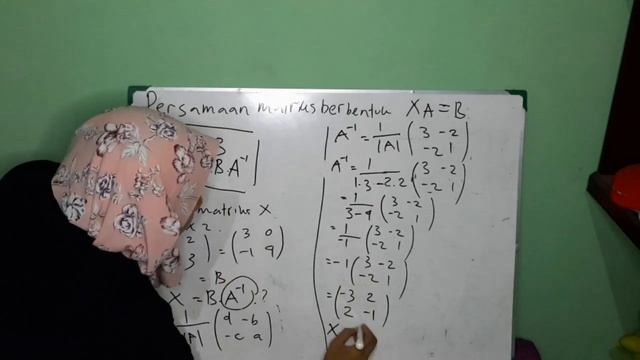 Persamaan matriks berbentuk XA = B
B
= B.A⁻¹
matriks X.
x 2.
2
3) = (3 0
-1 9)
= B
X = B.A⁻¹ ?
1
|A| (d -b
-c a)
A⁻¹ = 1/|A| (3 -2
-2 1)
A⁻¹ = 1/1.3-2.2 (3 -2
-2 1)
= 1/3-4 (3 -2
-2 1)
= 1/-1 (3 -2
-2 1)
= -1 (3 -2
-2 1)
= (-3 2
2 -1)
X